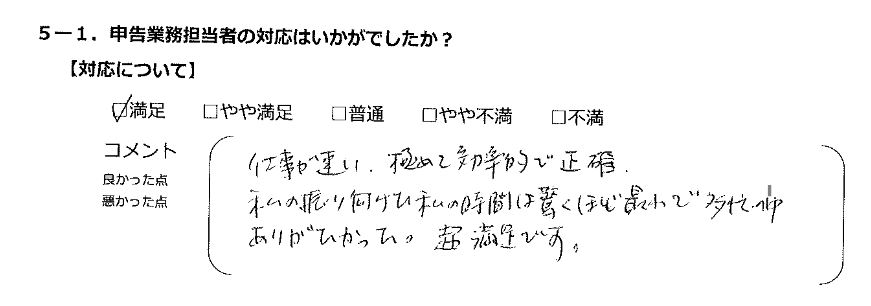 5－1．申告業務担当者の対応はいかがでしたか？
【対応について】
☑満足 □やや満足 □普通 □やや不満 □不満
コメント
良かった点
悪かった点
仕事が速い、極めて効率的で正確。
私の振り向けた私の時間は驚くほど最小で多忙の中
ありがたかった。超満足です。